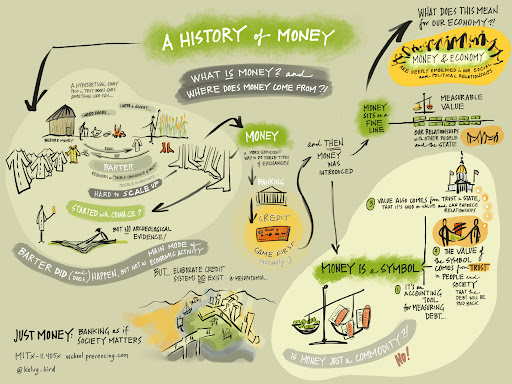 A HISTORY of MONEY
WHAT IS MONEY? and
WHERE DOES MONEY COME FROM?!
WHAT DOES THIS MEAN
FOR OUR ECONOMY?!
MONEY & ECONOMY
ARE DEEPLY EMBEDDED in OUR SOCIAL
and POLITICAL RELATIONSHIPS
A HYPOTHETICAL STORY
SOMETHING LIKE THIS...
BEFORE MONEY
I NEED SHOES
BARTER
HARD to SCALE UP
STARTED with COINAGE?
BUT NO ARCHEOLOGICAL
EVIDENCE!
BARTER DID (and DOES) HAPPEN, BUT NOT as MAIN MODE of
ECONOMIC ACTIVITY
BUT... ELABORATE CREDIT
SYSTEMS DID EXIST in MESOPOTAMIA...
MONEY
A MORE EFFICIENT
WAY to DO THESE TYPES
of EXCHANGES
BANKING
CREDIT
CAME FIRST
and THEN
MONEY
WAS
INTRODUCED
MONEY
SITS on a
FINE
LINE
MEASURABLE
VALUE
OUR RELATIONSHIPS
with OTHER PEOPLE
and the STATE
MONEY IS a SYMBOL
③ VALUE ALSO COMES from TRUST in STATE,
THAT IT'S USED as VALUE and CAN ENFORCE
RELATIONSHIPS
② THE VALUE of
the SYMBOL
COMES from TRUST
in PEOPLE and
SOCIETY
THAT the
DEBT WILL BE
PAID BACK
① IT'S an
ACCOUNTING
TOOL
for MEASURING
DEBT...
IS MONEY JUST a COMMODITY?!
NO!
JUST MONEY: BANKING as if
SOCIETY MATTERS
MITx-11.405x uschool.presencing.com
@kelvy_bird